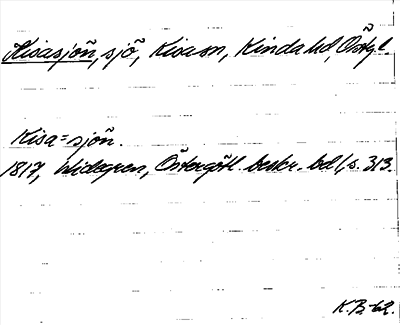 Kisasjön, sjö, Kisa sn, Kinda hd, Östgl.
Kisa=sjön.
1817, Widegren, Östergötl. beskr. bd 1, s. 313.